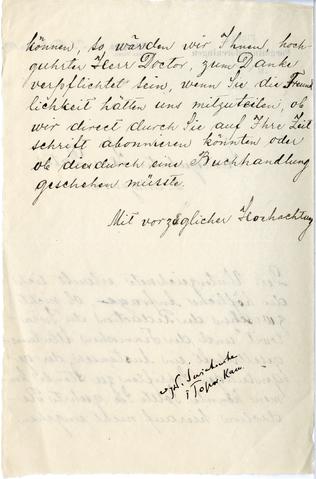 können, so würden wir Ihnen, hoch
geehrter Herr Doctor, zum Danke
verpflichtet sein, wenn Sie die Freund
lichkeit hätten uns mitzuteilen, ob
wir direct durch Sie auf Ihre Zeit
schrift abonnieren könnten oder
ob dies durch eine Buchhandlung
geschehen müsste.
Mit vorzüglicher Hochachtung